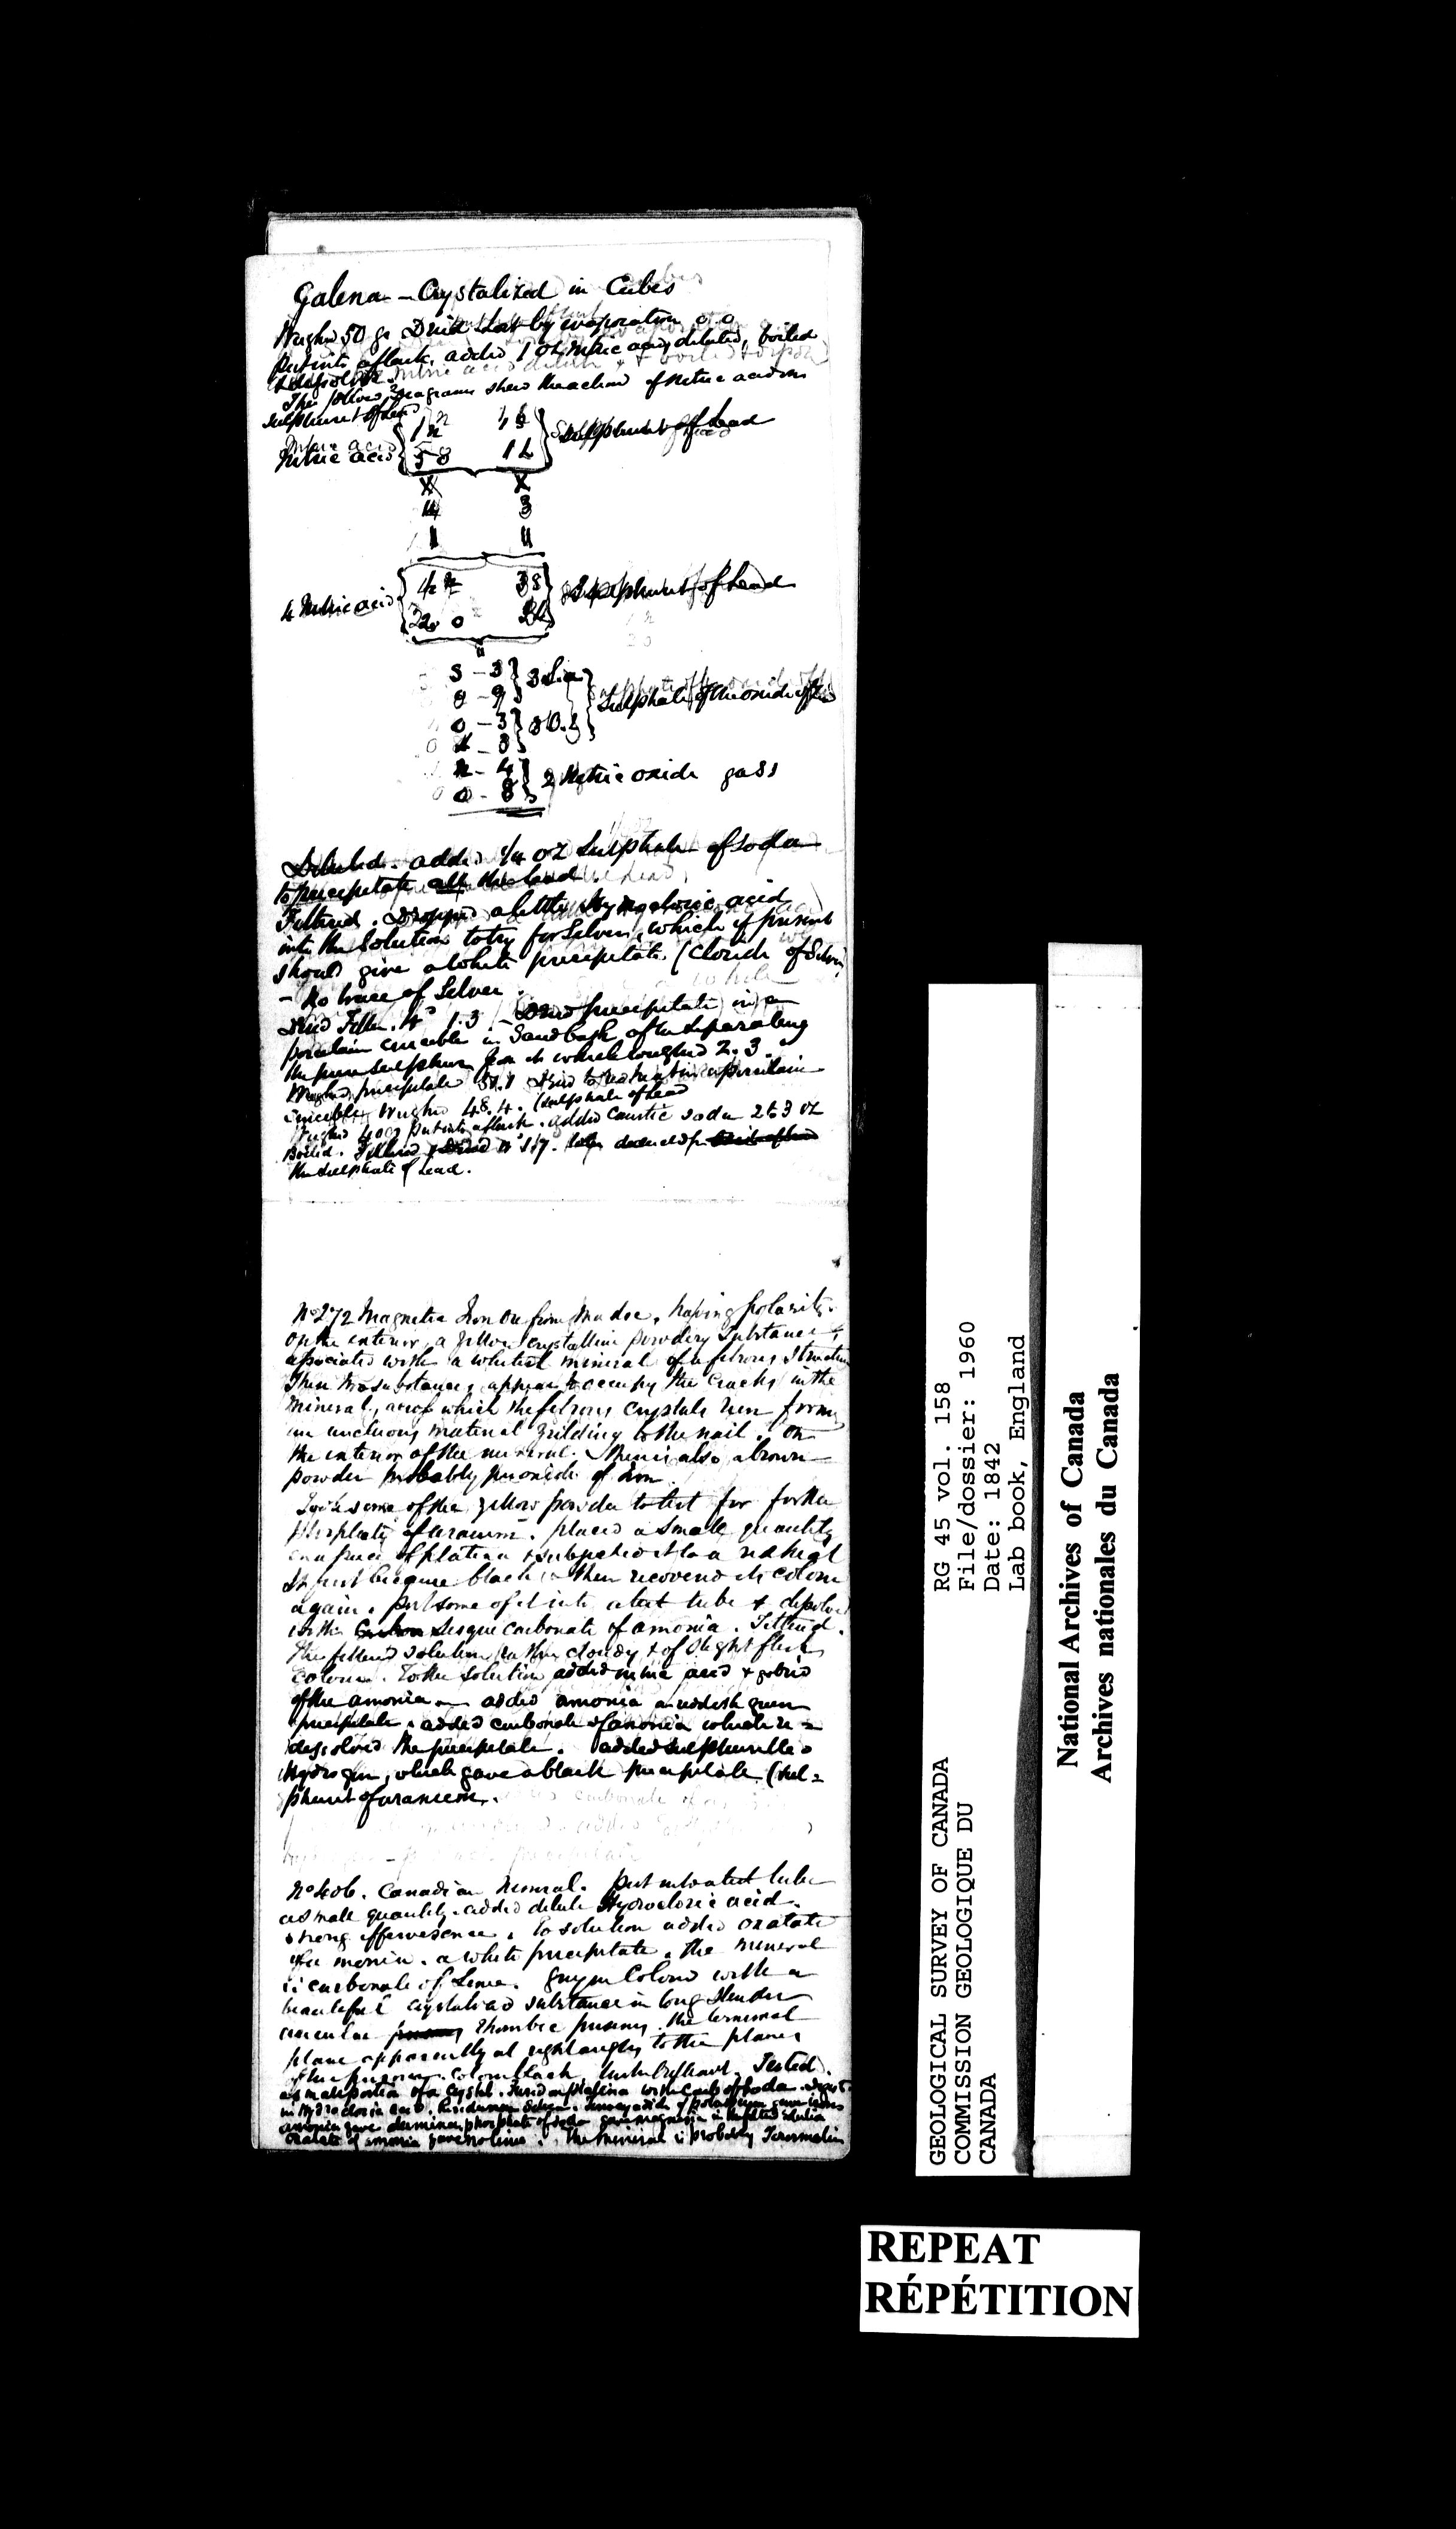 Galena - Crystalized in Cubes
Weighed 50 gr Dried Lost by evaporation 0.0
Put into a flask, added 1 oz nitric acid, diluted, boiled
& dissolved.
The follow? diagrams shew the action of nitric acid on
sulphuret of Lead
Nitric acid { 1 n 1 s } Sulphuret of Lead
5 o 1 L
X X
4 3
11 11
4 Nitric acid { 4 n 3 s } 3 Sulphuret of Lead
20 o 3 L
S - 3 } 3 S.a.
o - 9
o - 3 } 3 O.L } Sulphate of the oxide of
L - 3
n - 4 } 2 Nitric oxide gass
o - 8
Diluted. added 1/4 oz Sulphate of Soda
to precipitate all the lead
Filtered. Dropped a little Hydrocloric acid
into the Solution to try for Silver, which if present
should give a white precipitate (Cloride of Silver)
- No trace of Silver.
Dried Filter. 4° 1.3 - Dried precipitate in a
porcelain crucible in Sand bath after separating
the pure sulphur from it which weighed 2.3.
Weighed precipitate 50.1 Dried to red heat in a porcelain
crucible, weighed 48.4. (sulphate of lead
Weighed 40 gr put into a flask. added caustic soda 2 to 3 oz
Boiled. Filtered
the sulphate of Lead.
No 272 Magnetic Iron Ore from Madoc, having polarity.
On the exterior, a yellow crystalline powdery substance,
associated with a whitish mineral of a fibrous structure
These two substances appear to occupy the cracks in the
mineral, across which the fibrous crystals run forming
an unctuous material yielding to the nail. On
the exterior of the mineral. There is also a brown
powder probably peroxide of Iron.
Took some of the yellow powder to test for
Phosphate of uranium. placed a small quantity
on a piece of platina & subjected it to a red heat
It first became black & then recovered its colour
again. put some of it into a test tube & dissolved
with Sesquecarbonate of amonia. Filtered.
The filtered solution rather cloudy & of slight flesh
colour. To the solution added nitric acid & got rid
of the amonia - added amonia a reddish green
precipitate. added carbonate of amonia which re =
dissolved the precipitate. added sulphuretted
Hydrogen, which gave a black precipitate (sul =
phuret of uranium.
No 406. Canadian Mineral. put into a test tube
a small quantity. added dilute Hydrocloric acid.
strong effervescence. To solution added oxalate
of amonia. a white precipitate. the mineral
is carbonate of Lime. Greyish Colour with a
beautiful crystalized substance in long slender
acicular rhombic prisms. the terminal
plane apparently at right angles to the planes
of the prisms. colour black, lustre brilliant. Tested
a small portion of a crystal. Fused on platina with carb of soda.
in Hydrocloric acid. Residuum Silica.
amonia gave alumina, phosphate of soda gave magnesia in the filtered solution
oxalate of amonia gave no lime. The mineral is probably Tourmaline
GEOLOGICAL SURVEY OF CANADA
COMMISSION GEOLOGIQUE DU
CANADA
RG 45 vol. 158
File/dossier: 1960
Date: 1842
Lab book, England
National Archives of Canada
Archives nationales du Canada
REPEAT
RÉPÉTITION